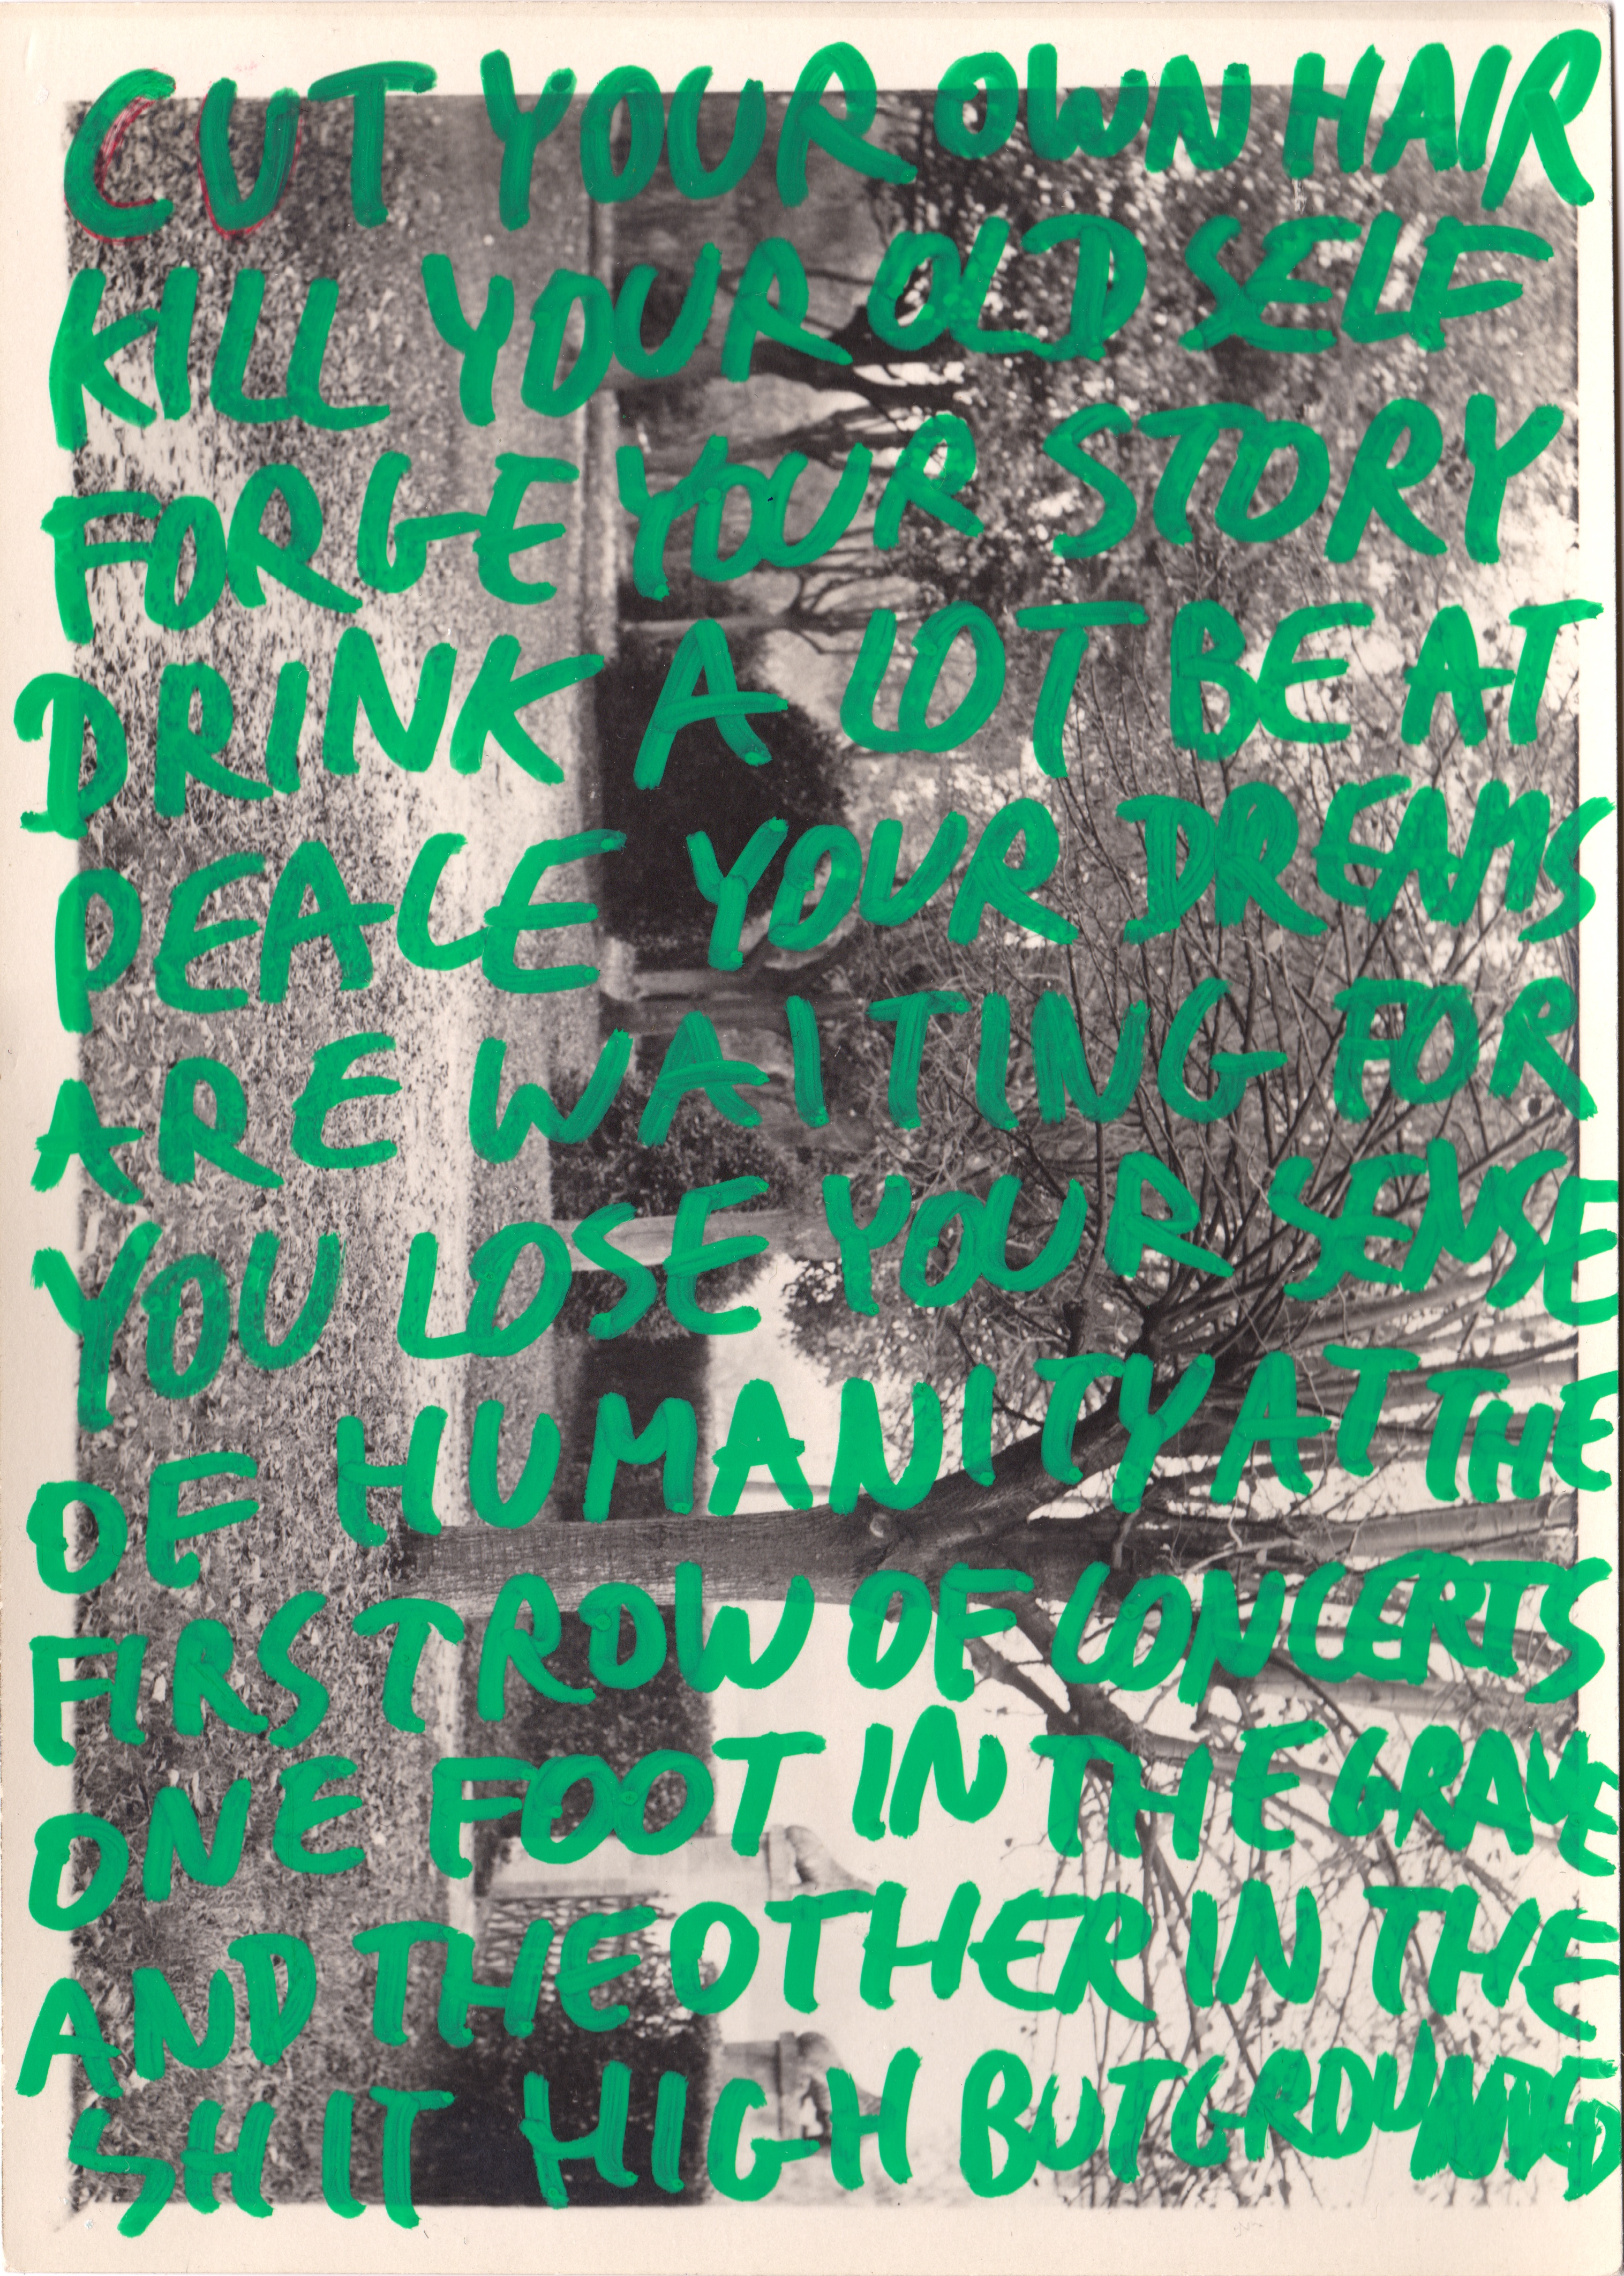 CUT YOUR OWN HAIR
KILL YOUR OLD SELF
FORGE YOUR STORY
DRINK A LOT BE AT
PEACE YOUR DREAMS
ARE WAITING FOR
YOU LOSE YOUR SENSE
OF HUMANITY AT THE
FIRST ROW OF CONCERTS
ONE FOOT IN THE GRAVE
AND THE OTHER IN THE
SHIT HIGH BUT GROUNDED